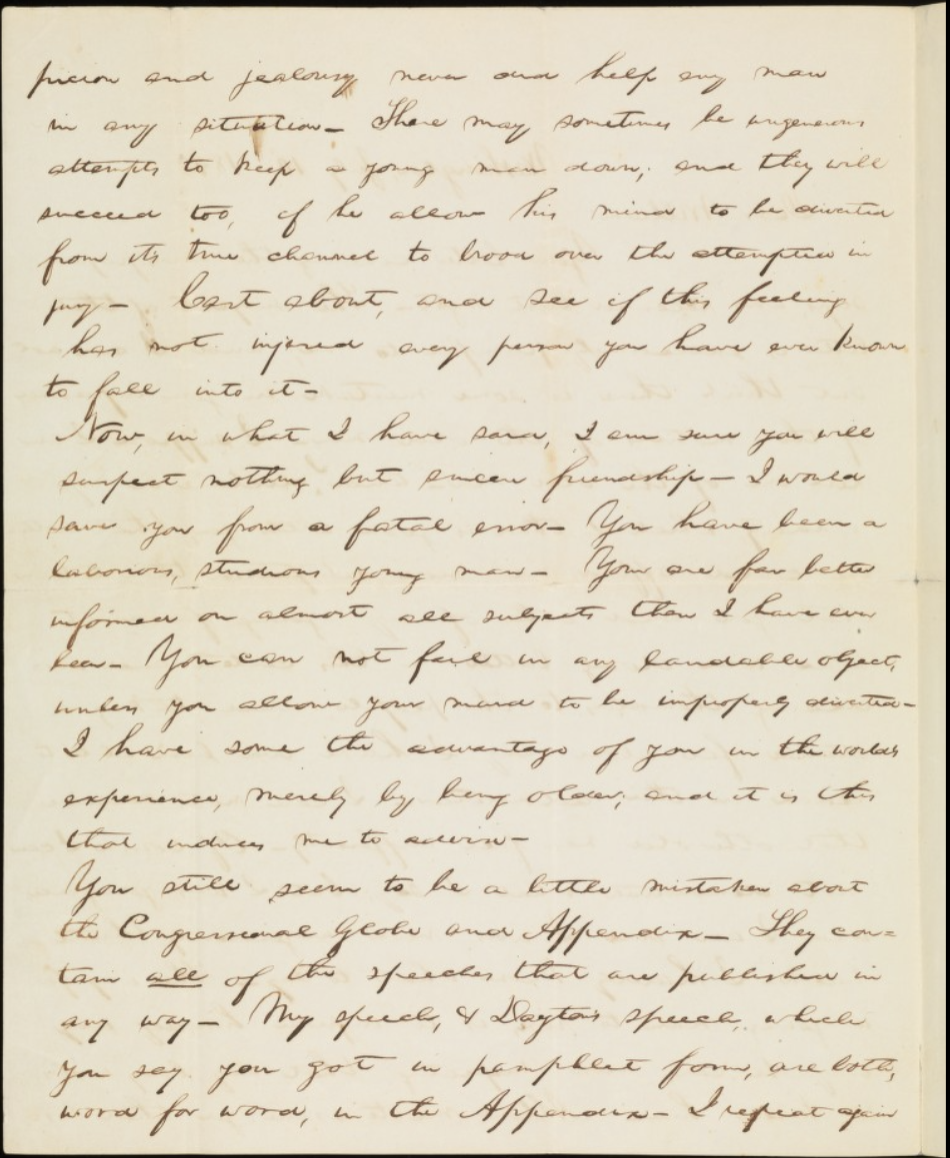 picion and jealousy never did help any man
in any situation— There may sometimes be ungenerous
attempts to keep a young man down; and they will
succeed too, if he allows his mind to be diverted
from its true channel to brood over the attempted in
jury— Cast about, and see if this feeling
has not injured every person you have ever known
to fall into it—
Now, in what I have said, I am sure you will
suspect nothing but sincere friendship— I would
save you from a fatal error— You have been a
laborious, studious young man— You are far better
informed on almost all subjects than I have ever
been— You can not fail in any laudable object,
unless you allow your mind to be improperly diverted—
I have some the advantage of you in the world's
experience, merely by being older; and it is this
that induces me to advise—
You still seem to be a little mistaken about
the Congressional Globe and Appendix— They con=
tain all of the speeches that are published in
any way— My speech, & Dayton's speech, which
you say you got in pamphlet form, are both,
word for word, in the Appendix— I repeat again